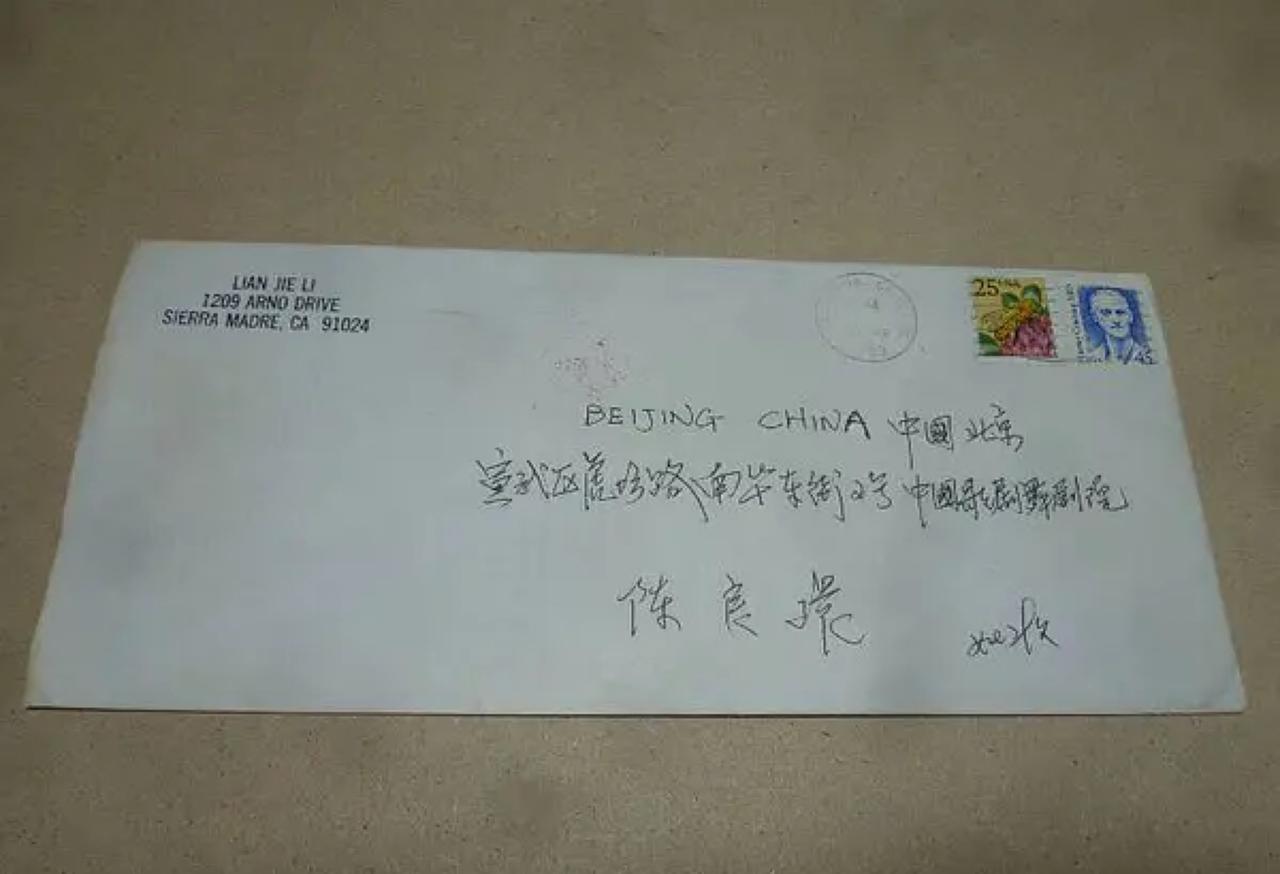 LIAN JIE LI
1209 ARNO DRIVE
SIERRA MADRE, CA 91024
25 USA
45
BEIJING CHINA 中國北京
宣武区虎坊路南华东街2号 中國歌剧舞剧院
陈良璟 如收